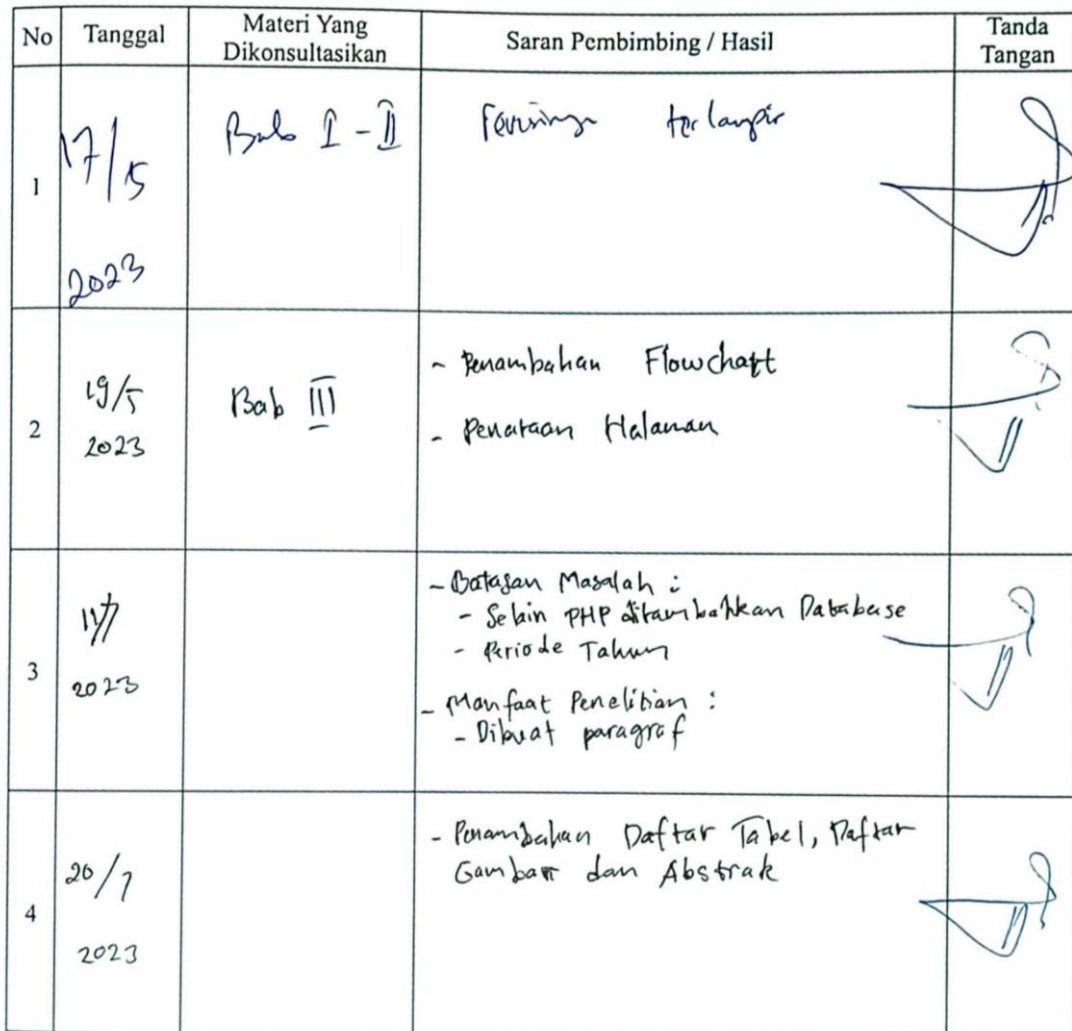 No
Tanggal
Materi Yang
Dikonsultasikan
Saran Pembimbing / Hasil
Tanda
Tangan
1
17/5
2023
Bab I - II
terlampir
2
19/5
2023
Bab III
- Penambahan Flowchart
- Penataan Halaman
3
2023
- Batasan Masalah :
- Selain PHP ditambahkan Database
- Periode Tahun
- Manfaat Penelitian :
- Dibuat paragraf
4
20/7
2023
- Penambahan Daftar Tabel, Daftar
Gambar dan Abstrak